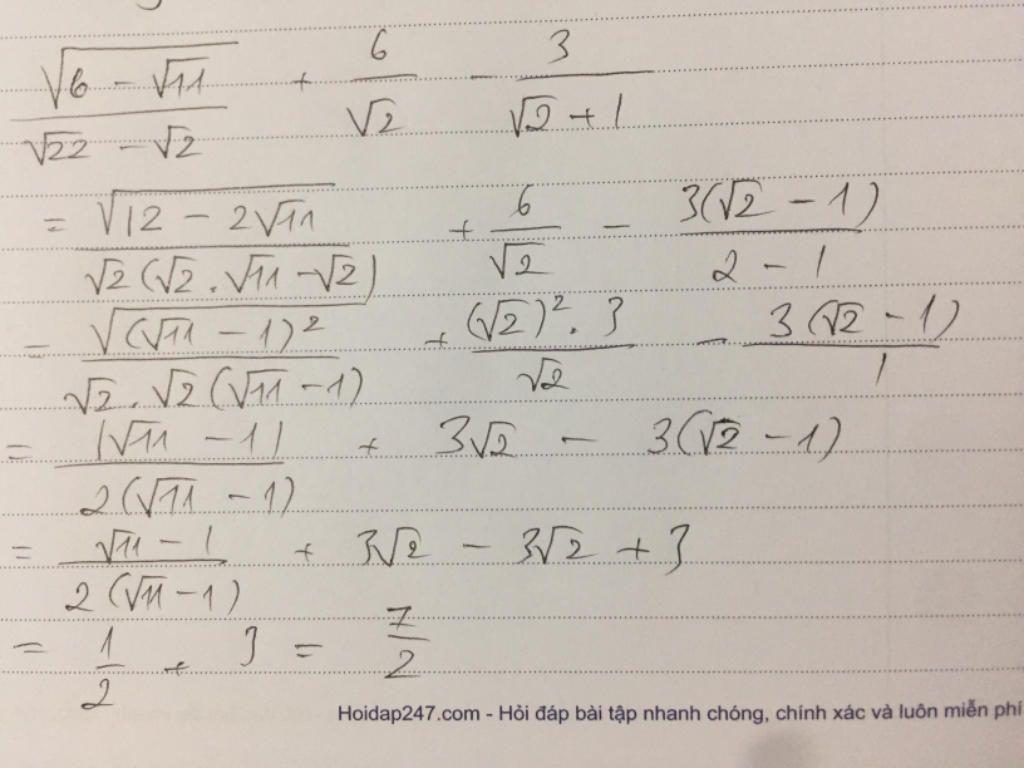 √(6 - √11) / (√22 - √2) + 6/√2 - 3/(√2 + 1)
= √(12 - 2√11) / (√2(√2 . √11 - √2)) + 6/√2 - 3(√2 - 1)/(2 - 1)
= √((√11 - 1)²) / (√2 . √2(√11 - 1)) + (√2)² . 3/√2 - 3(√2 - 1)/1
= |√11 - 1| / (2(√11 - 1)) + 3√2 - 3(√2 - 1)
= (√11 - 1) / (2(√11 - 1)) + 3√2 - 3√2 + 3
= 1/2 + 3 = 7/2
Hoidap247.com - Hỏi đáp bài tập nhanh chóng, chính xác và luôn miễn phí